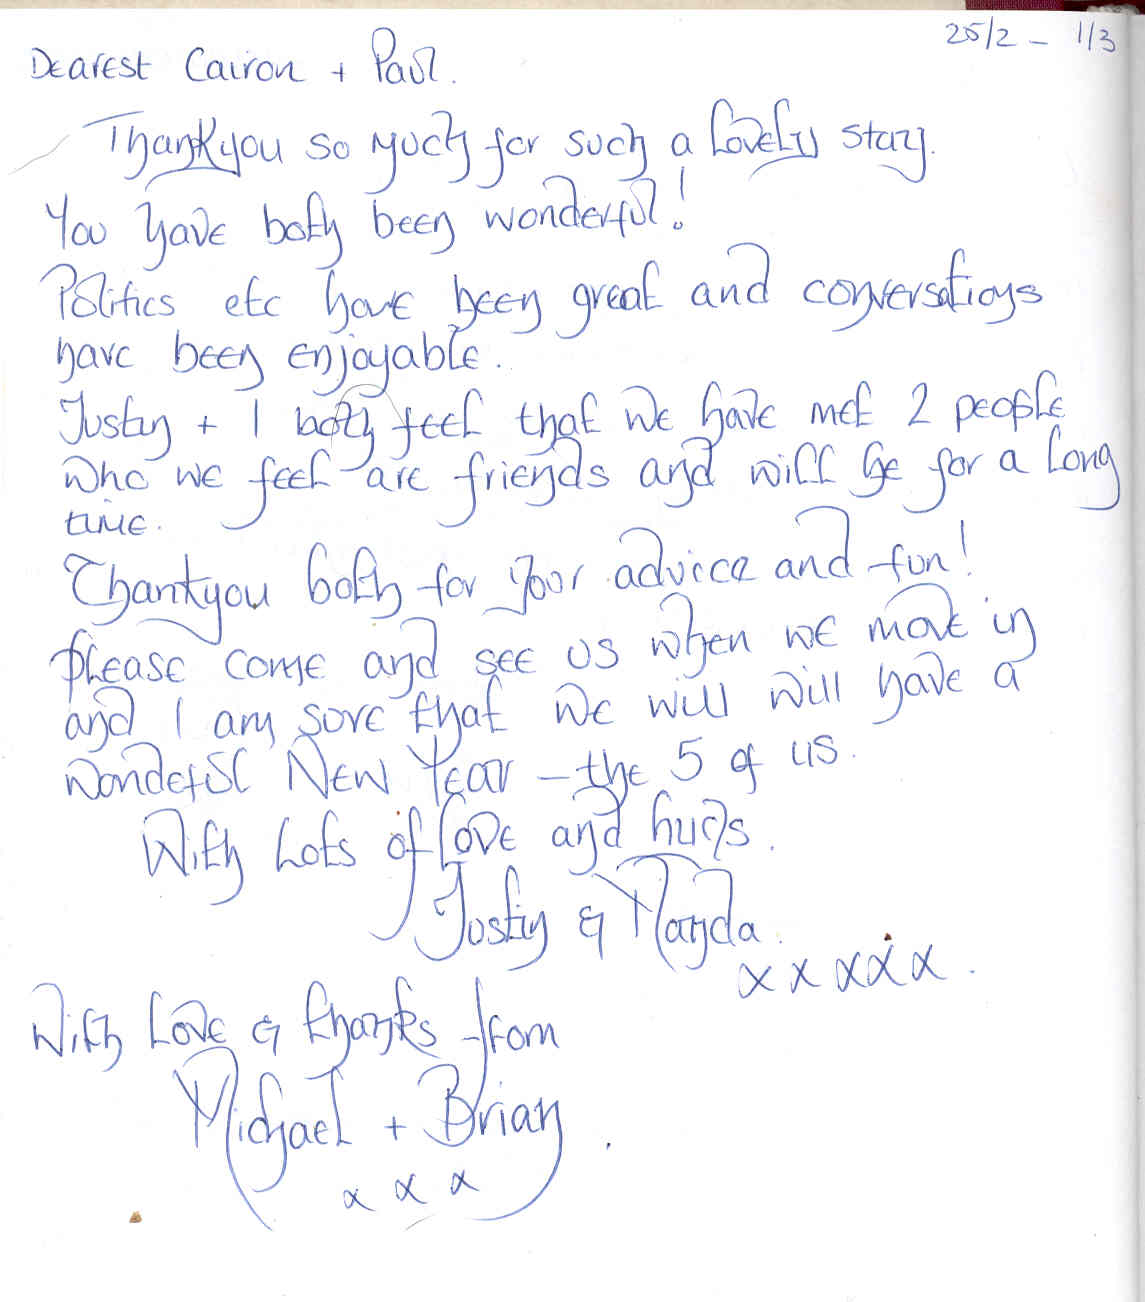 25/2 - 1/3
Dearest Cairon + Paul.
Thankyou so much for such a lovely stay.
You have both been wonderful!
Politics etc have been great and conversations
have been enjoyable.
Justin + I both feel that we have met 2 people
who we feel are friends and will be for a long
time.
Thankyou both for your advice and fun!
please come and see us when we move in
and I am sure that we will will have a
wonderful New Year - the 5 of us.
With Lots of love and hugs.
Justin & Manda.
x x x x x.
With Love & thanks from
Michael + Brian.
x x x